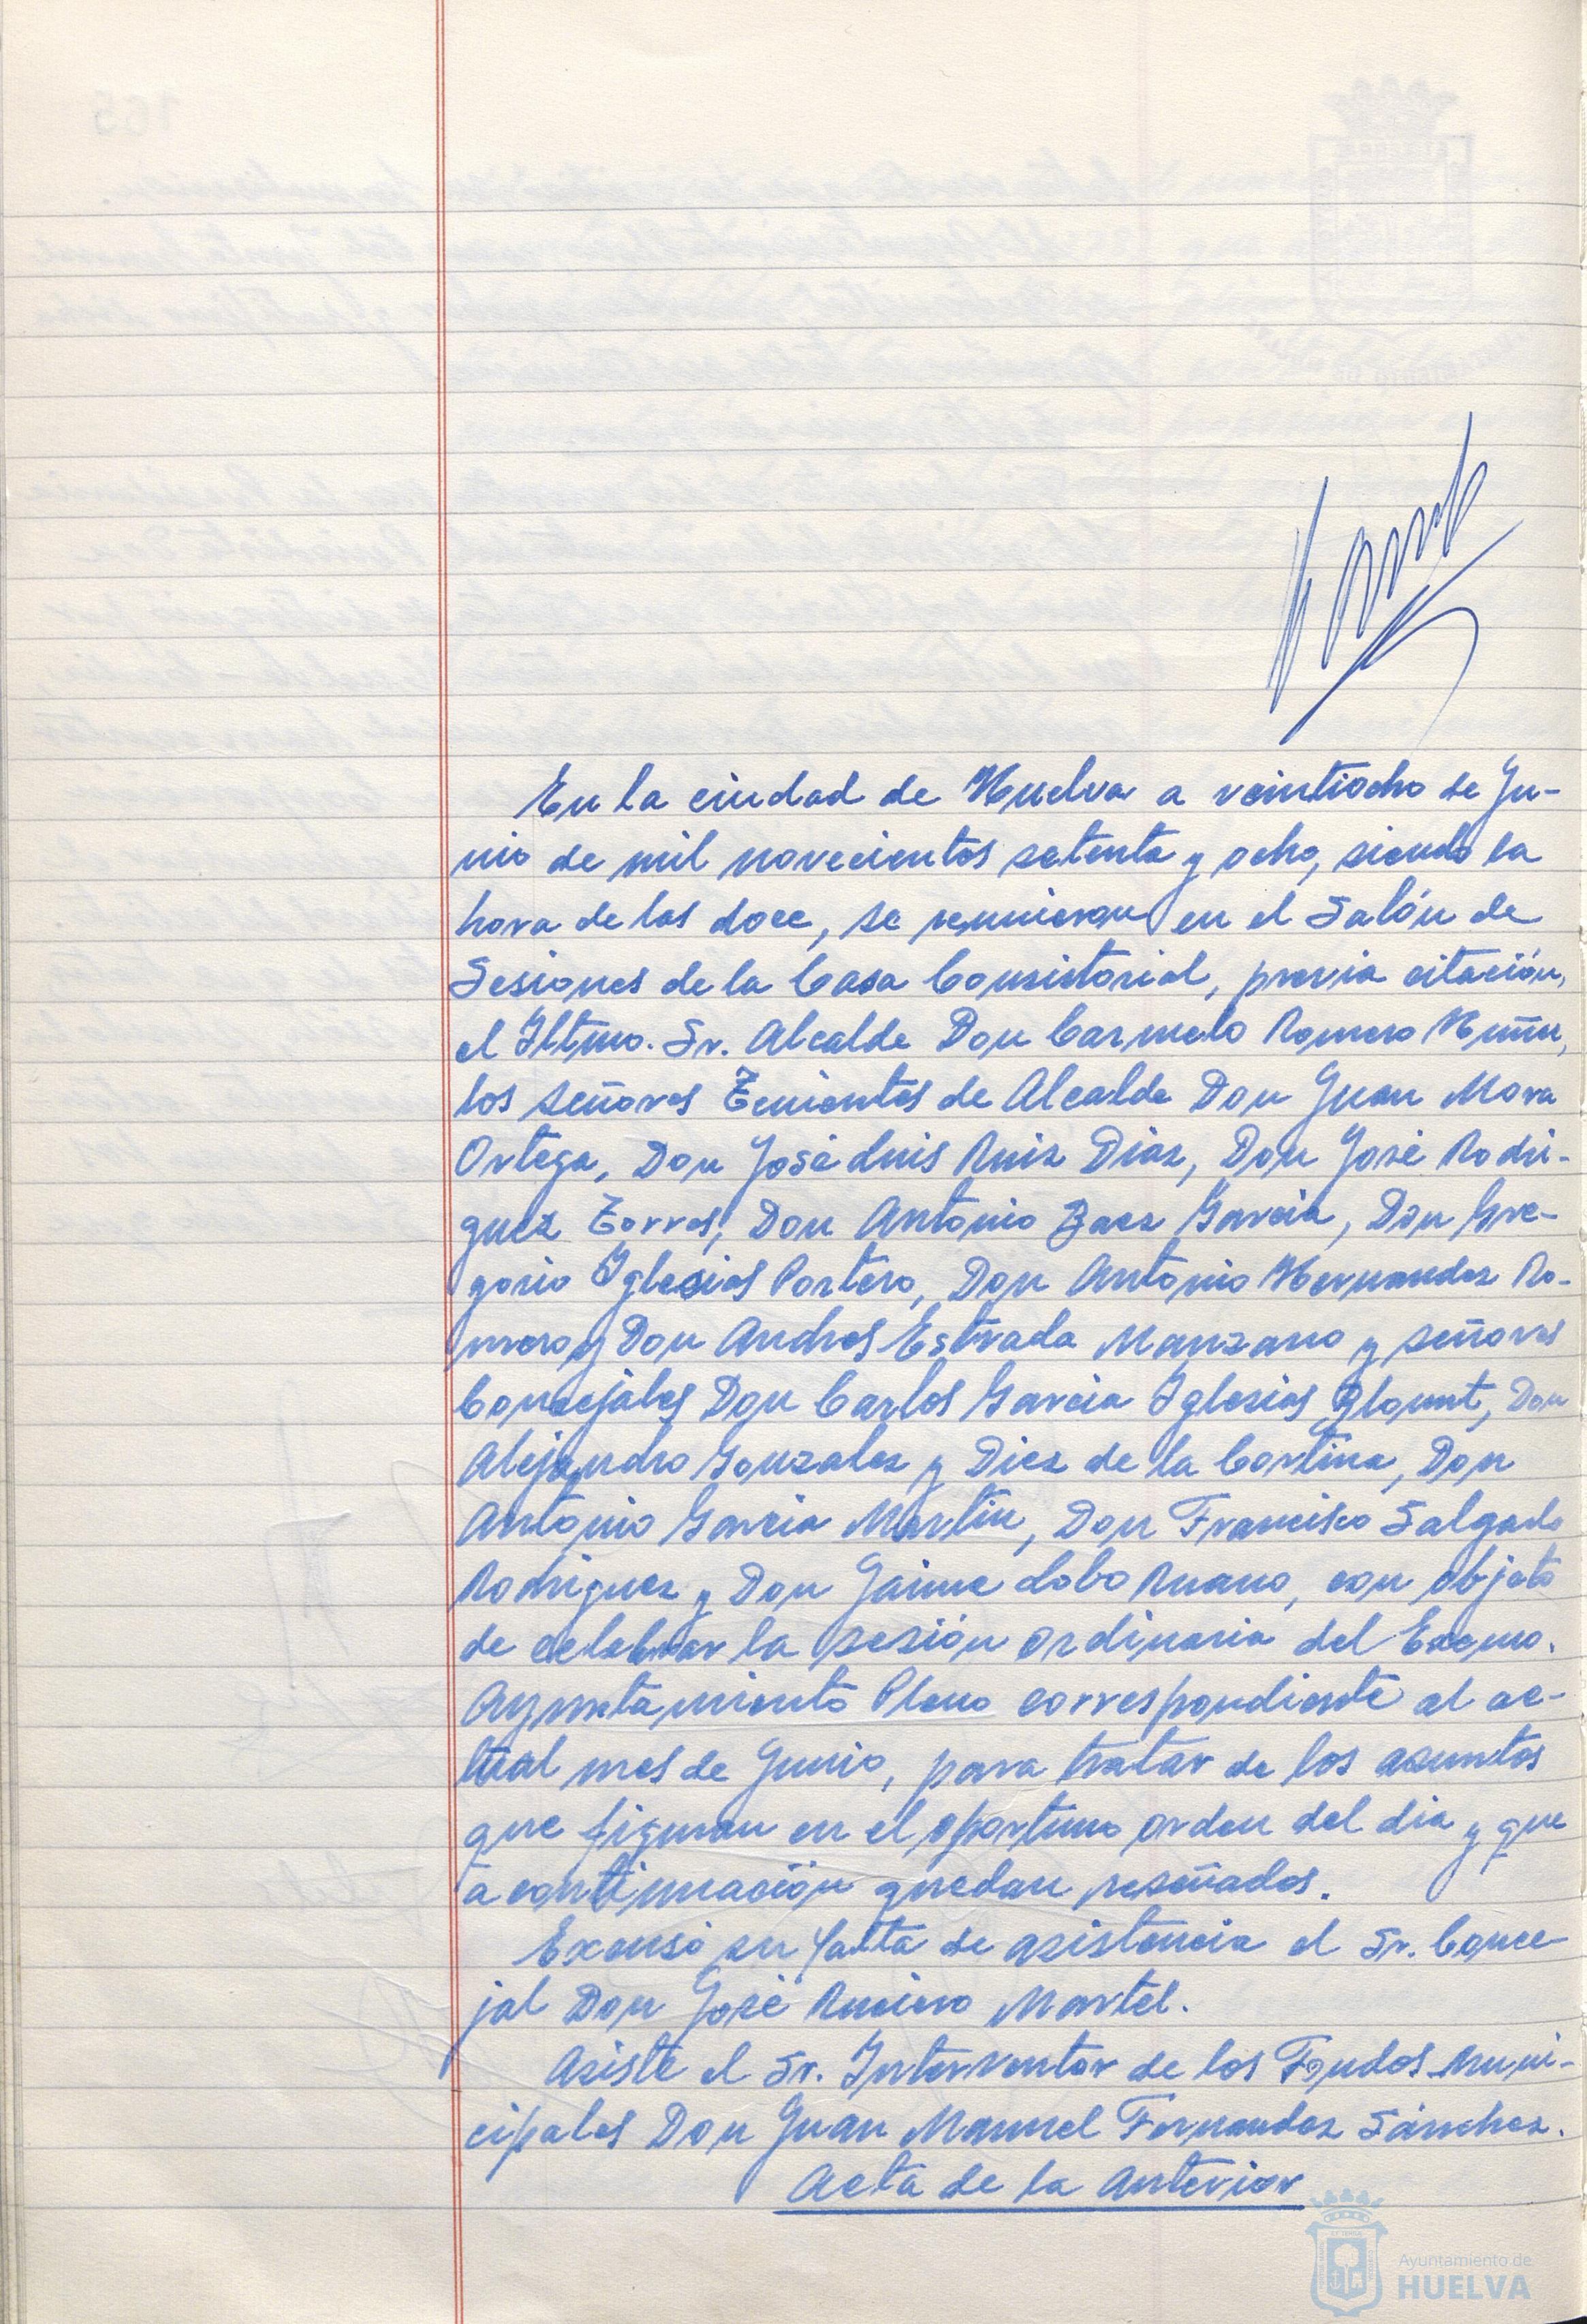 En la ciudad de Huelva a veintiocho de Ju-
nio de mil novecientos setenta y ocho, siendo la
hora de las doce, se reunieron en el Salón de
Sesiones de la Casa Consistorial, previa citación,
el Iltmo. Sr. Alcalde Don Carmelo Romero
los señores Tenientes de Alcalde Don Juan Mora
Ortega, Don José Luis Ruiz Diaz, Don José Rodri-
guez Torres, Don Antonio Baez Garcia, Don Gre-
gorio Iglesias Portero, Don Antonio Hernandez Ro-
mero y Don Andres Estrada Manzano y señores
Concejales Don Carlos Garcia Iglesias Blount, Don
Alejandro Gonzalez y Diez de la Cortina, Don
Antonio Garcia Martin, Don Francisco Salgado
Rodriguez y Don Jaime Lobo Ruano, con objeto
de celebrar la sesión ordinaria del Excmo.
Ayuntamiento Pleno correspondiente al ac-
tual mes de Junio, para tratar de los asuntos
que figuran en el oportuno orden del dia y que
a continuación quedan reseñados.
Excusó su falta de asistencia el Sr. Conce-
jal Don José Martel.
Asiste el Sr. Interventor de los Fondos Muni-
cipales Don Juan Manuel Fernandez Sánchez.
Acta de la anterior
Ayuntamiento de
HUELVA